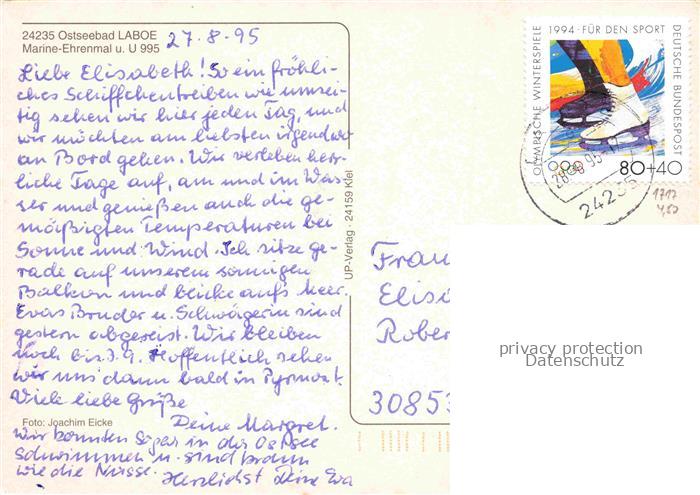 24235 Ostseebad LABOE
Marine-Ehrenmal u. U 995
27.8.95
Liebe Elisabeth! So ein fröhli-
ches Schiffchentreiben wie umsei-
tig sehen wir hier jeden Tag, und
wir möchten am liebsten irgendwo
an Bord gehen. Wir verleben herr-
liche Tage auf, am und im Was-
ser und genießen auch die ge-
mäßigten Temperaturen bei
Sonne und Wind. Ich sitze ge-
rade auf unserem sonnigen
Balkon und blicke aufs Meer.
Evas Bruder u. Schwägerin sind
gestern abgereist. Wir bleiben
noch bis 3.9. Hoffentlich sehen
wir uns dann bald in Pyrmont.
Viele liebe Grüße
Deine Margret.
Foto: Joachim Eicke
Wir konnten sogar in der Ostsee
schwimmen u. sind braun
wie die Nüsse. Herzlichst Deine Eva
UP-Verlag · 24159 Kiel
OLYMPISCHE WINTERSPIELE
1994 · FÜR DEN SPORT
DEUTSCHE BUNDESPOST
80+40
28.8.95
24235
1717
4,50
Frau
Elis
Rober
30853
privacy protection
Datenschutz